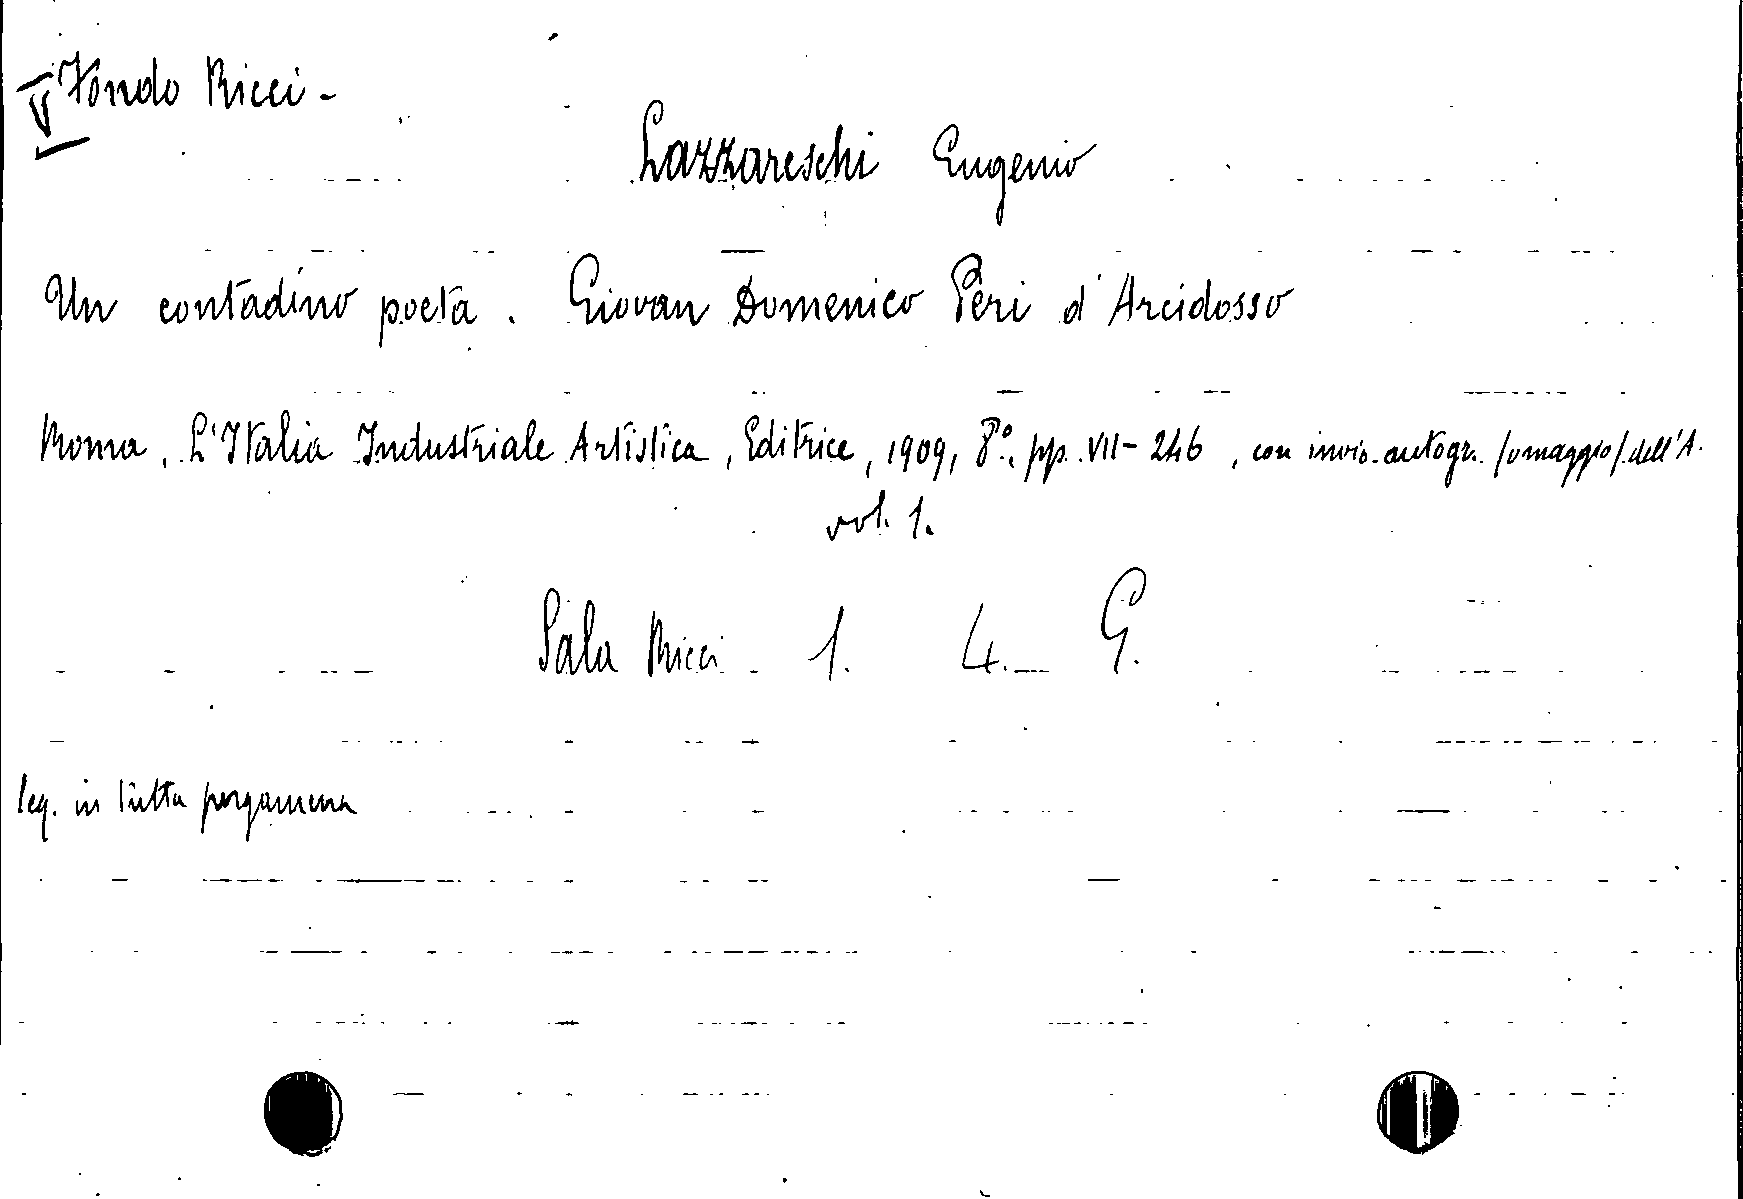 V Fondo Ricci -
Lazzareschi Eugenio
Un contadino poeta. Giovan Domenico Peri d'Arcidosso
Roma, L'Italia Industriale Artistica, Editrice, 1909, 8°, pp. VII-246, con invio autogr. /omaggio/ dell'A.
vol. 1.
Sala Ricci 1. 4. G.
leg. in tutta pergamena